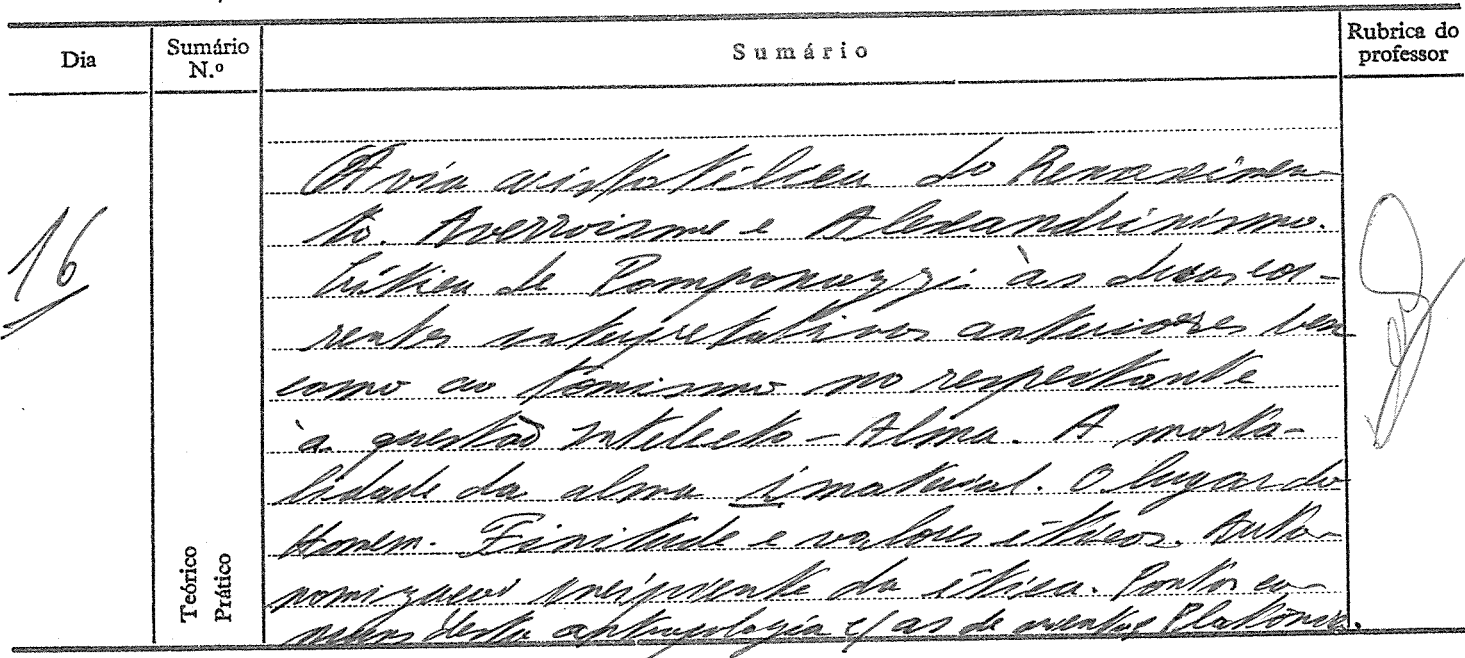 Dia
Sumário N.º
Sumário
Rubrica do professor
16
Teórico
Prático
A via aristotélica do Renascimen-
to. Averroismo e Alexandrinismo.
Crítica de Pomponazzi às duas cor-
rentes interpretativas anteriores bem
como ao Tomismo no respeitante
à questão Intelecto-Alma. A morta-
lidade da alma imaterial. O lugar do
Homem. Finitude e valores éticos. Auto-
nomização incipiente da ética. Pontos co-
muns desta antropologia c/ as de orientação Platónica.